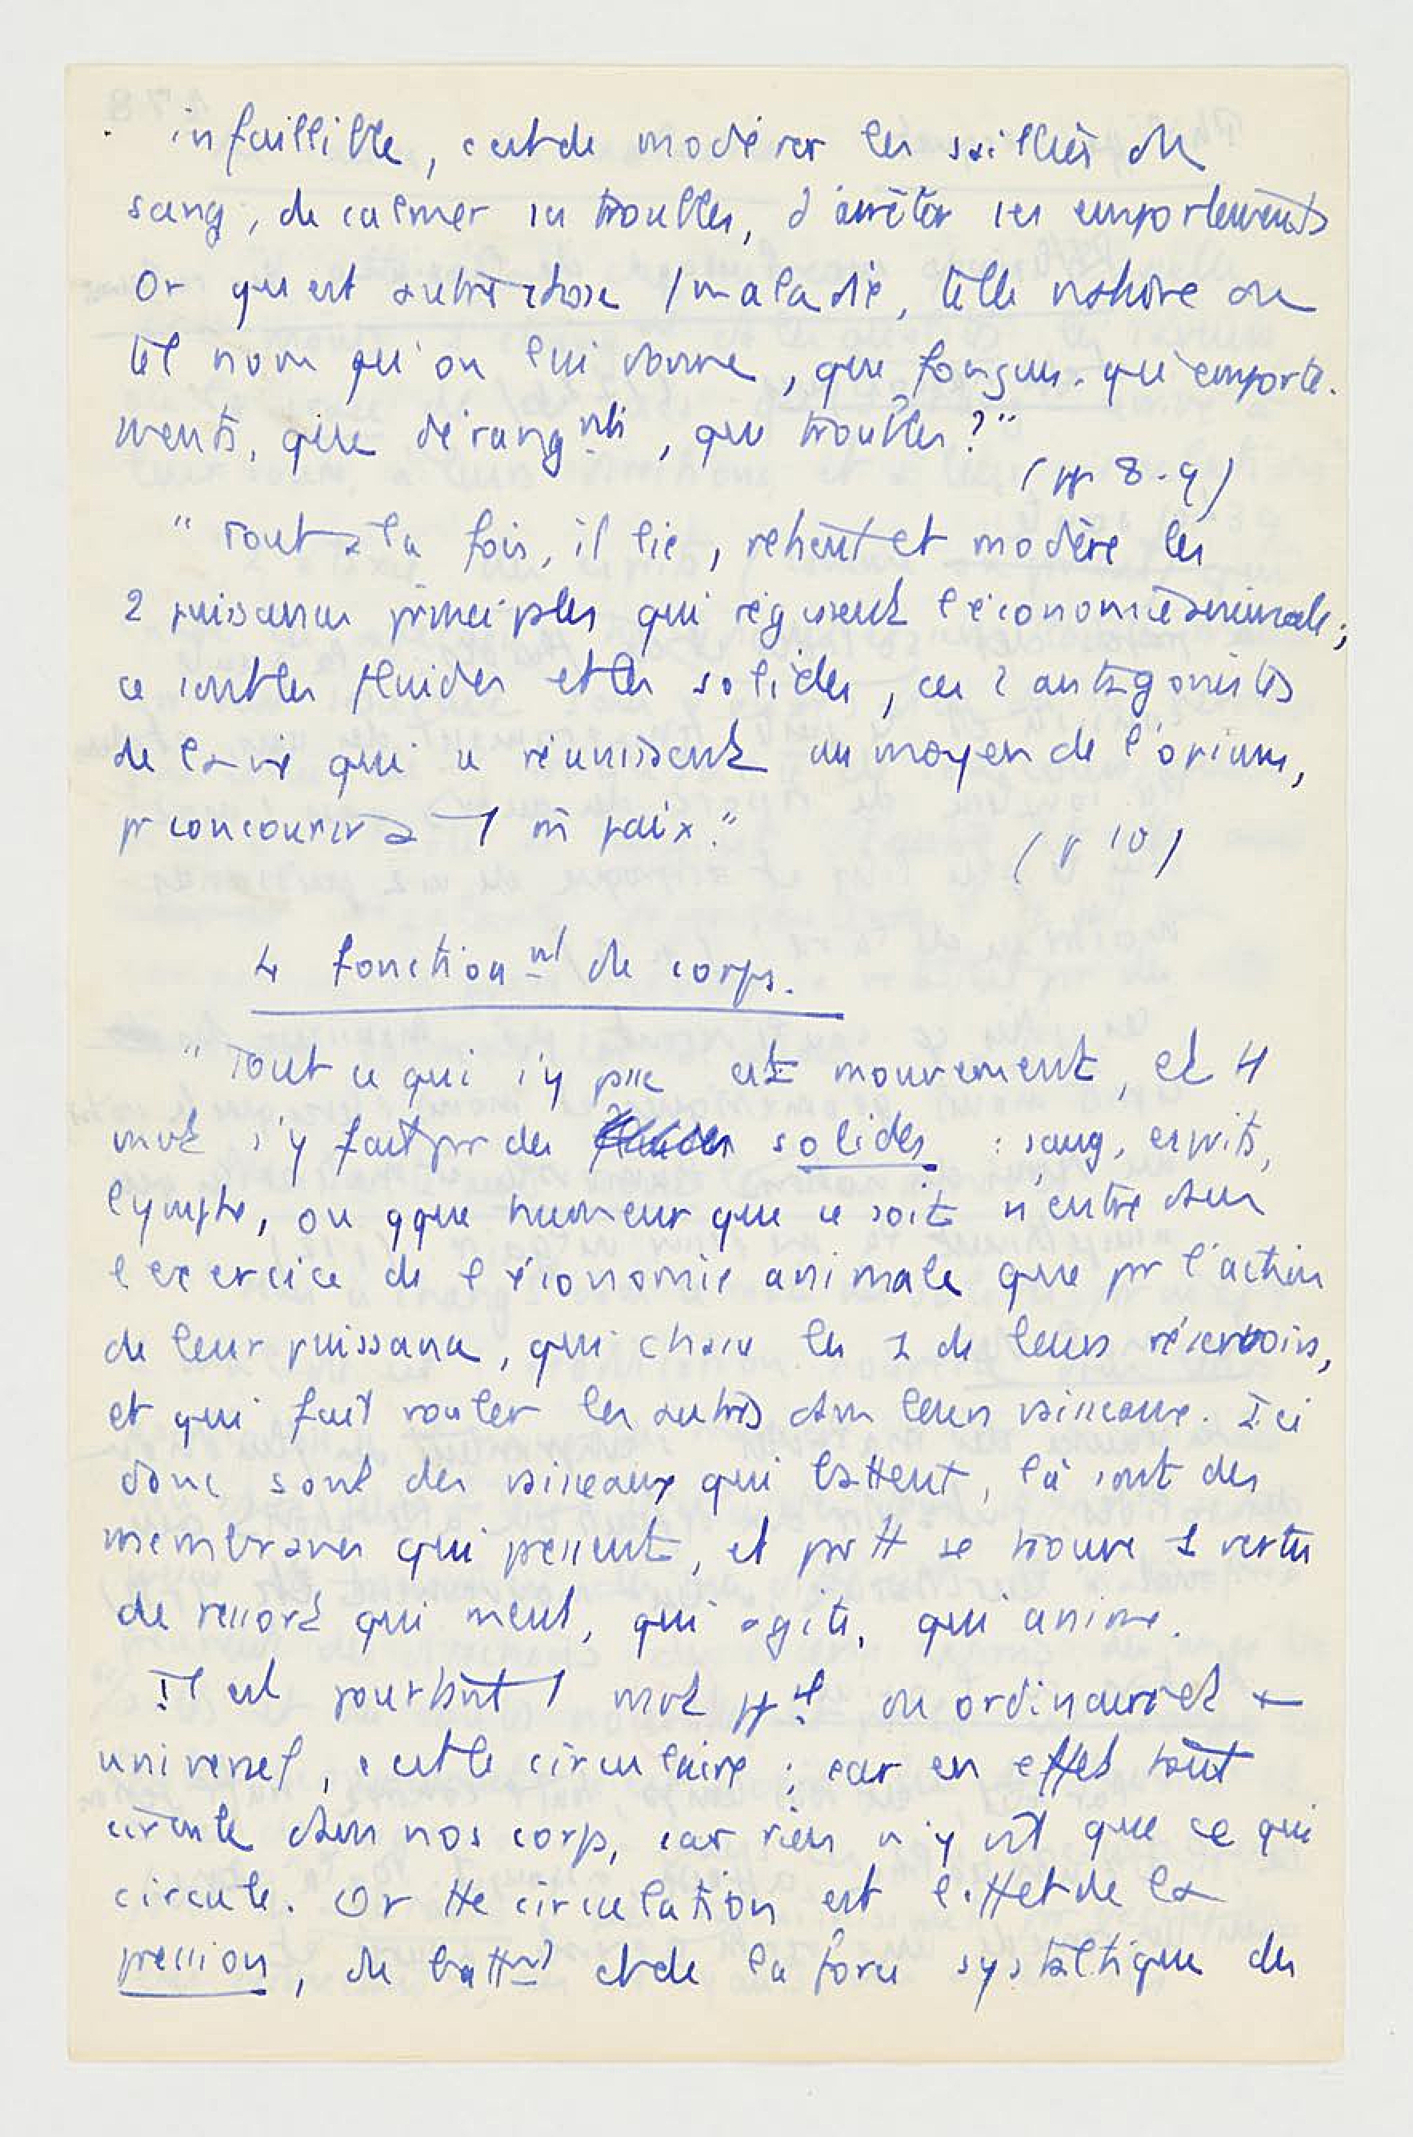 infaillible, c'est de modérer les saillies du
sang, de calmer ses troubles, d'arrêter ses emportements
Or qu'est autre chose 1 maladie, telle nature ou
tel nom qu'on lui donne, que fougues, qu'emporte-
ments, que dérangnts, que troubles ?"
(pp 8-9)
"Tout à la fois, il lie, retient et modère les
2 puissances principales qui régissent l'économie animale ;
ce sont les fluides et les solides, ces 2 antagonistes
de la vie qui se réunissent au moyen de l'opium,
pr concourir à 1 m̂ paix."
(p 10)
4 fonctionnt du corps.
"Tout ce qui s'y passe est mouvement, et tt
mvt s'y fait par des solides : sang, esprits,
lymphe, ou qque humeur que ce soit n'entre dans
l'exercice de l'économie animale que pr l'action
de leur puissance, qui chasse les 1 de leurs réservoirs,
et qui fait rouler les autres dans leurs vaisseaux. Ici
donc sont des vaisseaux qui battent, là sont des
membranes qui pressent, et partt se trouve 1 vertu
de ressort qui meut, qui agite, qui anime.
Il est pourtant 1 mvt ppl ou ordinairet +
universel, c'est le circulaire ; car en effet tout
circule dans nos corps, car rien n'y vit que ce qui
circule. Or tte circulation est l'effet de la
pression, du battnt et de la force systaltique des